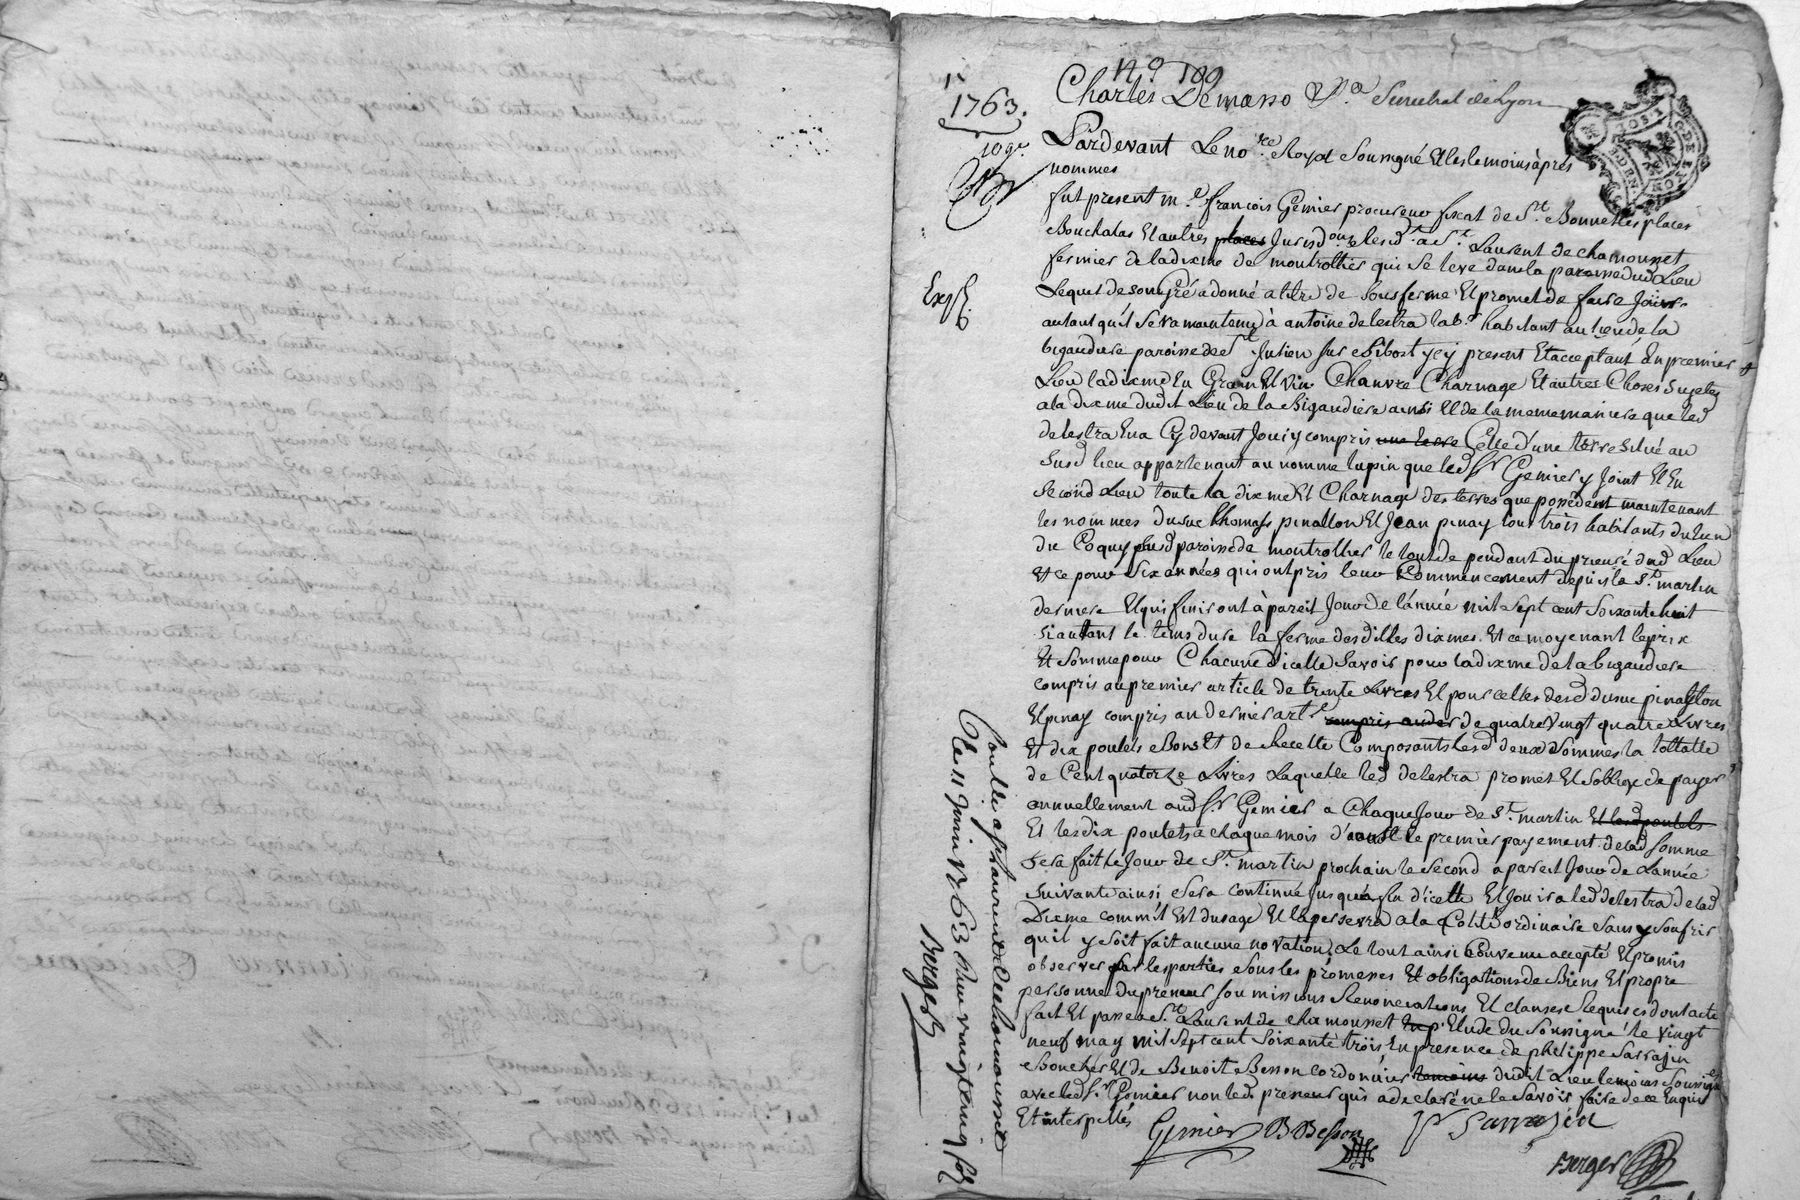 N.o 199
1763.
Charles Demasso &.a Senechal de Lyon
Pardevant Le no.re Royal Soussigné Et les temoins après
nommes
fut present m.e françois Gemier procureur fiscal de S.t Bonnet les places
Bouchalas Et autres places Jurisd.ons le resid.t a S.t Laurent de chamousset
fermier de la dixme de montrottier qui se leve dans la paroisse dud Lieu
Lequel de son Gré a donné a titre de sous ferme Et promet de faire Jouir
autant qu'il sera maintenu à antoine delestra lab.r habitant au lieu de la
bigaudiere paroisse de S.t Julien sur Bibost y cy present Et acceptant En premier
Lieu la dixme En Grain Et vin Chanvre Charnage Et autres Choses sujetes
a la dixme dudit Lieu de la Bigaudiere ainsi Et de la meme maniere que led
delestra En a Cy devant Joui y compris une terre Celle d'une terre située au
susd lieu appartenant au nomme lupin que led S.r Gemier y Joint Et En
second Lieu toute la dixme Et Charnage des terres que possedent maintenant
les nommes dusuc thomas pinallon Et Jean pinay tous trois habitants du lieu
du Coquy susd paroisse de montrottier le tout dependant du prieuré dud Lieu
Et ce pour six années qui ont pris leur Commencement depuis la S.t martin
derniere Et qui finiront à pareil Jour de l'année mil sept cent soixante huit
si autant le tems dure la ferme desdittes dixmes. Et ce moyenant le prix
Et somme pour Chacune d'icelle savoir pour la dixme de la bigaudiere
compris au premier article de trente Livres Et pour celles desd dusuc pinallon
Et pinay compris au dernier art.e compris au der de quatre vingt quatre Livres
Et dix poulets Bons Et de Recette Composants lesd deux sommes la tottalle
de Cent quatorze Livres Laquelle led delestra promet Et s'oblige de payer
annuellement aud S.r Gemier a Chaque Jour de S.t martin Et lesd poulets
Et les dix poulets a chaque mois d'aoust le premier payement de lad somme
sera fait le Jour de S.t martin prochain le second a pareil Jour de L'année
suivante ainsi sera continué Jusqu'a fin d'icelle Et Jouira led delestra de lad
Dixme comm'il Est d'usage Et la persevra a la Cotité ordinaire sans y soufrir
qu'il y soit fait aucune novation, Le tout ainsi Convenu accepté Et promis
observer par les parties sous les promesses Et obligations de Biens Et propre
personne du preneur soumissions Renonciations Et clauses Requises dont acte
fait Et passé a S.t Laurent de chamousset Etude du soussigné le vingt
neuf may mil sept cent soixante trois En presence de philippe sarrajin
Boucher Et de Benoit Besson cordonnier temoins dudit Lieu temoins soussignés
avec led S.r Gemier non led preneur qui a declaré ne le savoir faire de ce Enquis
Et interpellés
Gemier B Besson P Sarrajin
Berger
Controllé a S.t Laurent de chamousset
le 11 Juin 1763 Reçu vingt cinq sols
Berger